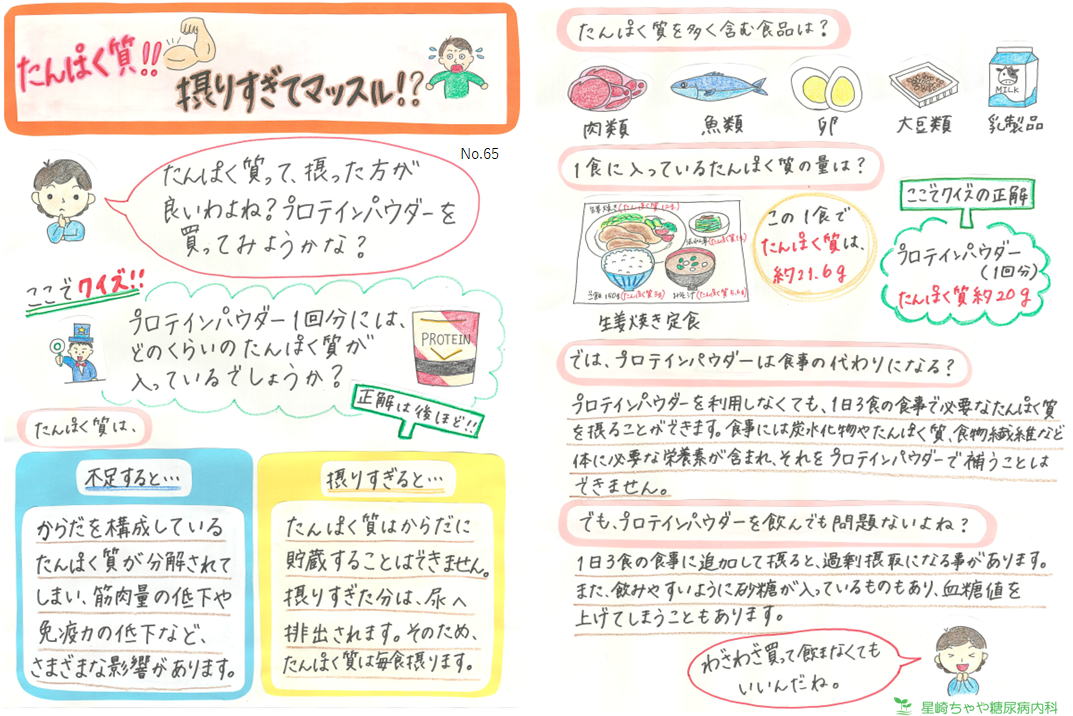 たんぱく質!!
摂りすぎてマッスル!?
No.65
たんぱく質って、摂った方が
良いわよね？プロテインパウダーを
買ってみようかな？
ここでクイズ!!
プロテインパウダー1回分には、
どのくらいのたんぱく質が
入っているでしょうか？
PROTEIN
正解は後ほど!!
たんぱく質は、
不足すると…
からだを構成している
たんぱく質が分解されて
しまい、筋肉量の低下や
免疫力の低下など、
さまざまな影響があります。
摂りすぎると…
たんぱく質はからだに
貯蔵することはできません。
摂りすぎた分は、尿へ
排出されます。そのため、
たんぱく質は毎食摂ります。
たんぱく質を多く含む食品は？
MILK
肉類
魚類
卵
大豆類
乳製品
1食に入っているたんぱく質の量は？
生姜焼き定食
この1食で
たんぱく質は、
約21.6g
ここでクイズの正解
プロテインパウダー
(1回分)
たんぱく質約20g
では、プロテインパウダーは食事の代わりになる？
プロテインパウダーを利用しなくても、1日3食の食事で必要なたんぱく質
を摂ることができます。食事には炭水化物やたんぱく質、食物繊維など
体に必要な栄養素が含まれ、それをプロテインパウダーで補うことは
できません。
でも、プロテインパウダーを飲んでも問題ないよね？
1日3食の食事に追加して摂ると、過剰摂取になる事があります。
また、飲みやすいように砂糖が入っているものもあり、血糖値を
上げてしまうこともあります。
わざわざ買って飲まなくても
いいんだね。
星崎ちゃや糖尿病内科